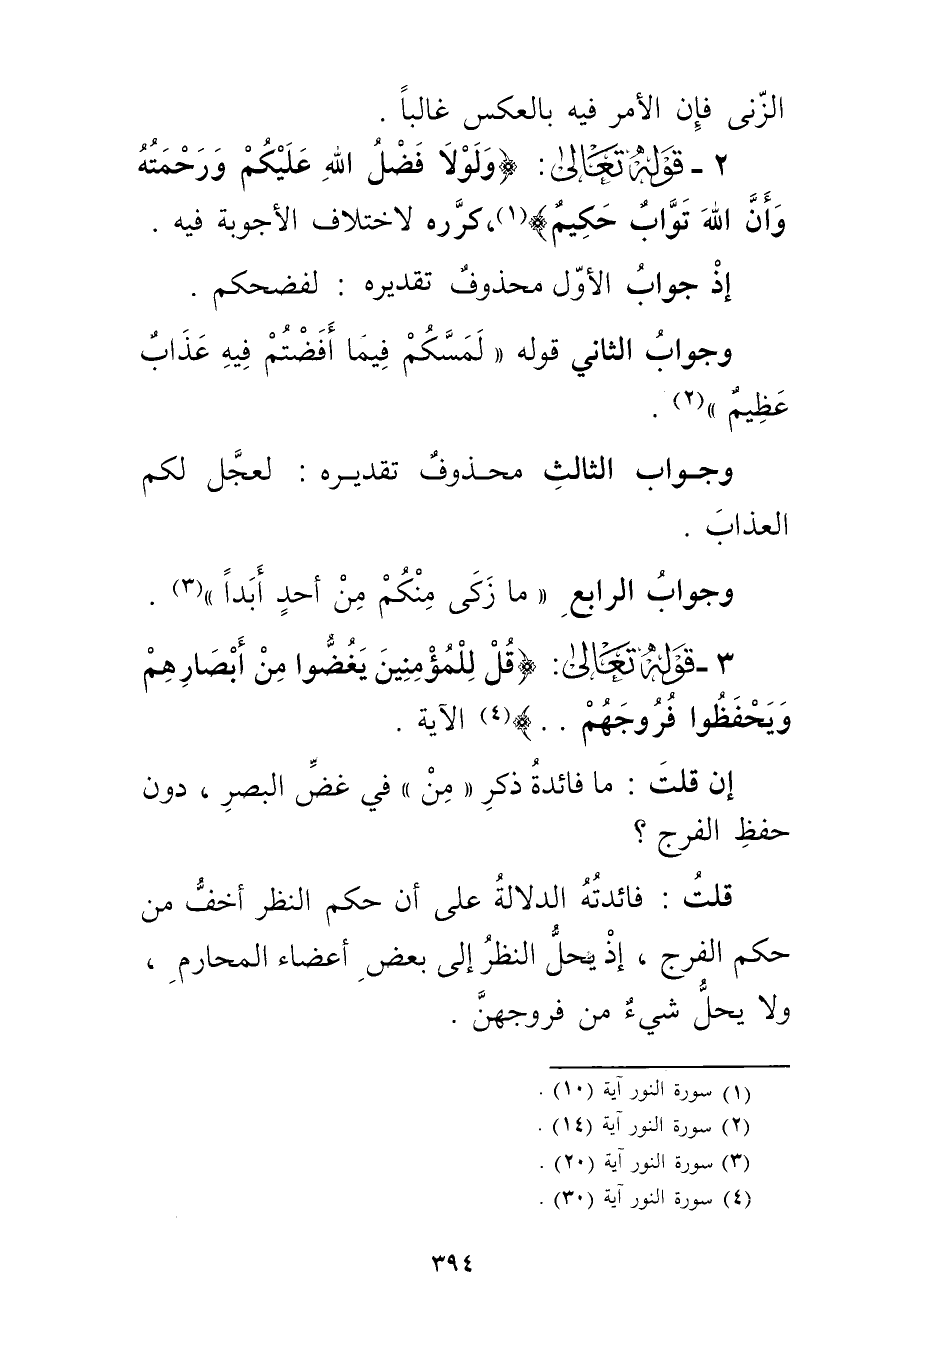 الزّنى فإِن الأمر فيه بالعكس غالباً .
٢ - قَوْلُهُ تَعَالَىٰ : ﴿وَلَوْلاَ فَضْلُ اللهِ عَلَيْكُمْ وَرَحْمَتُهُ
وَأَنَّ اللهَ تَوَّابٌ حَكِيمٌ﴾(١)، كرَّره لاختلاف الأجوبة فيه .
إذْ جوابُ الأوّل محذوفٌ تقديره : لفضحكم .
وجوابُ الثاني قوله « لَمَسَّكُمْ فِيمَا أَفَضْتُمْ فِيهِ عَذَابٌ
عَظِيمٌ »(٢) .
وجواب الثالثِ محذوفٌ تقديره : لعجَّل لكم
العذابَ .
وجوابُ الرابعِ « ما زَكَى مِنْكُمْ مِنْ أحدٍ أَبَداً »(٣) .
٣ - قَوْلُهُ تَعَالَىٰ : ﴿قُلْ لِلْمُؤْمِنِينَ يَغُضُّوا مِنْ أَبْصَارِهِمْ
وَيَحْفَظُوا فُرُوجَهُمْ . . ﴾(٤) الآية .
إن قلتَ : ما فائدةُ ذكرِ « مِنْ » في غضِّ البصرِ ، دون
حفظِ الفرج ؟
قلتُ : فائدتُهُ الدلالةُ على أن حكم النظر أخفُّ من
حكم الفرج ، إذْ يحلُّ النظرُ إلى بعضِ أعضاء المحارمِ ،
ولا يحلُّ شيءٌ من فروجهنَّ .
(١) سورة النور آية (١٠) .
(٢) سورة النور آية (١٤) .
(٣) سورة النور آية (٢٠) .
(٤) سورة النور آية (٣٠) .
٣٩٤